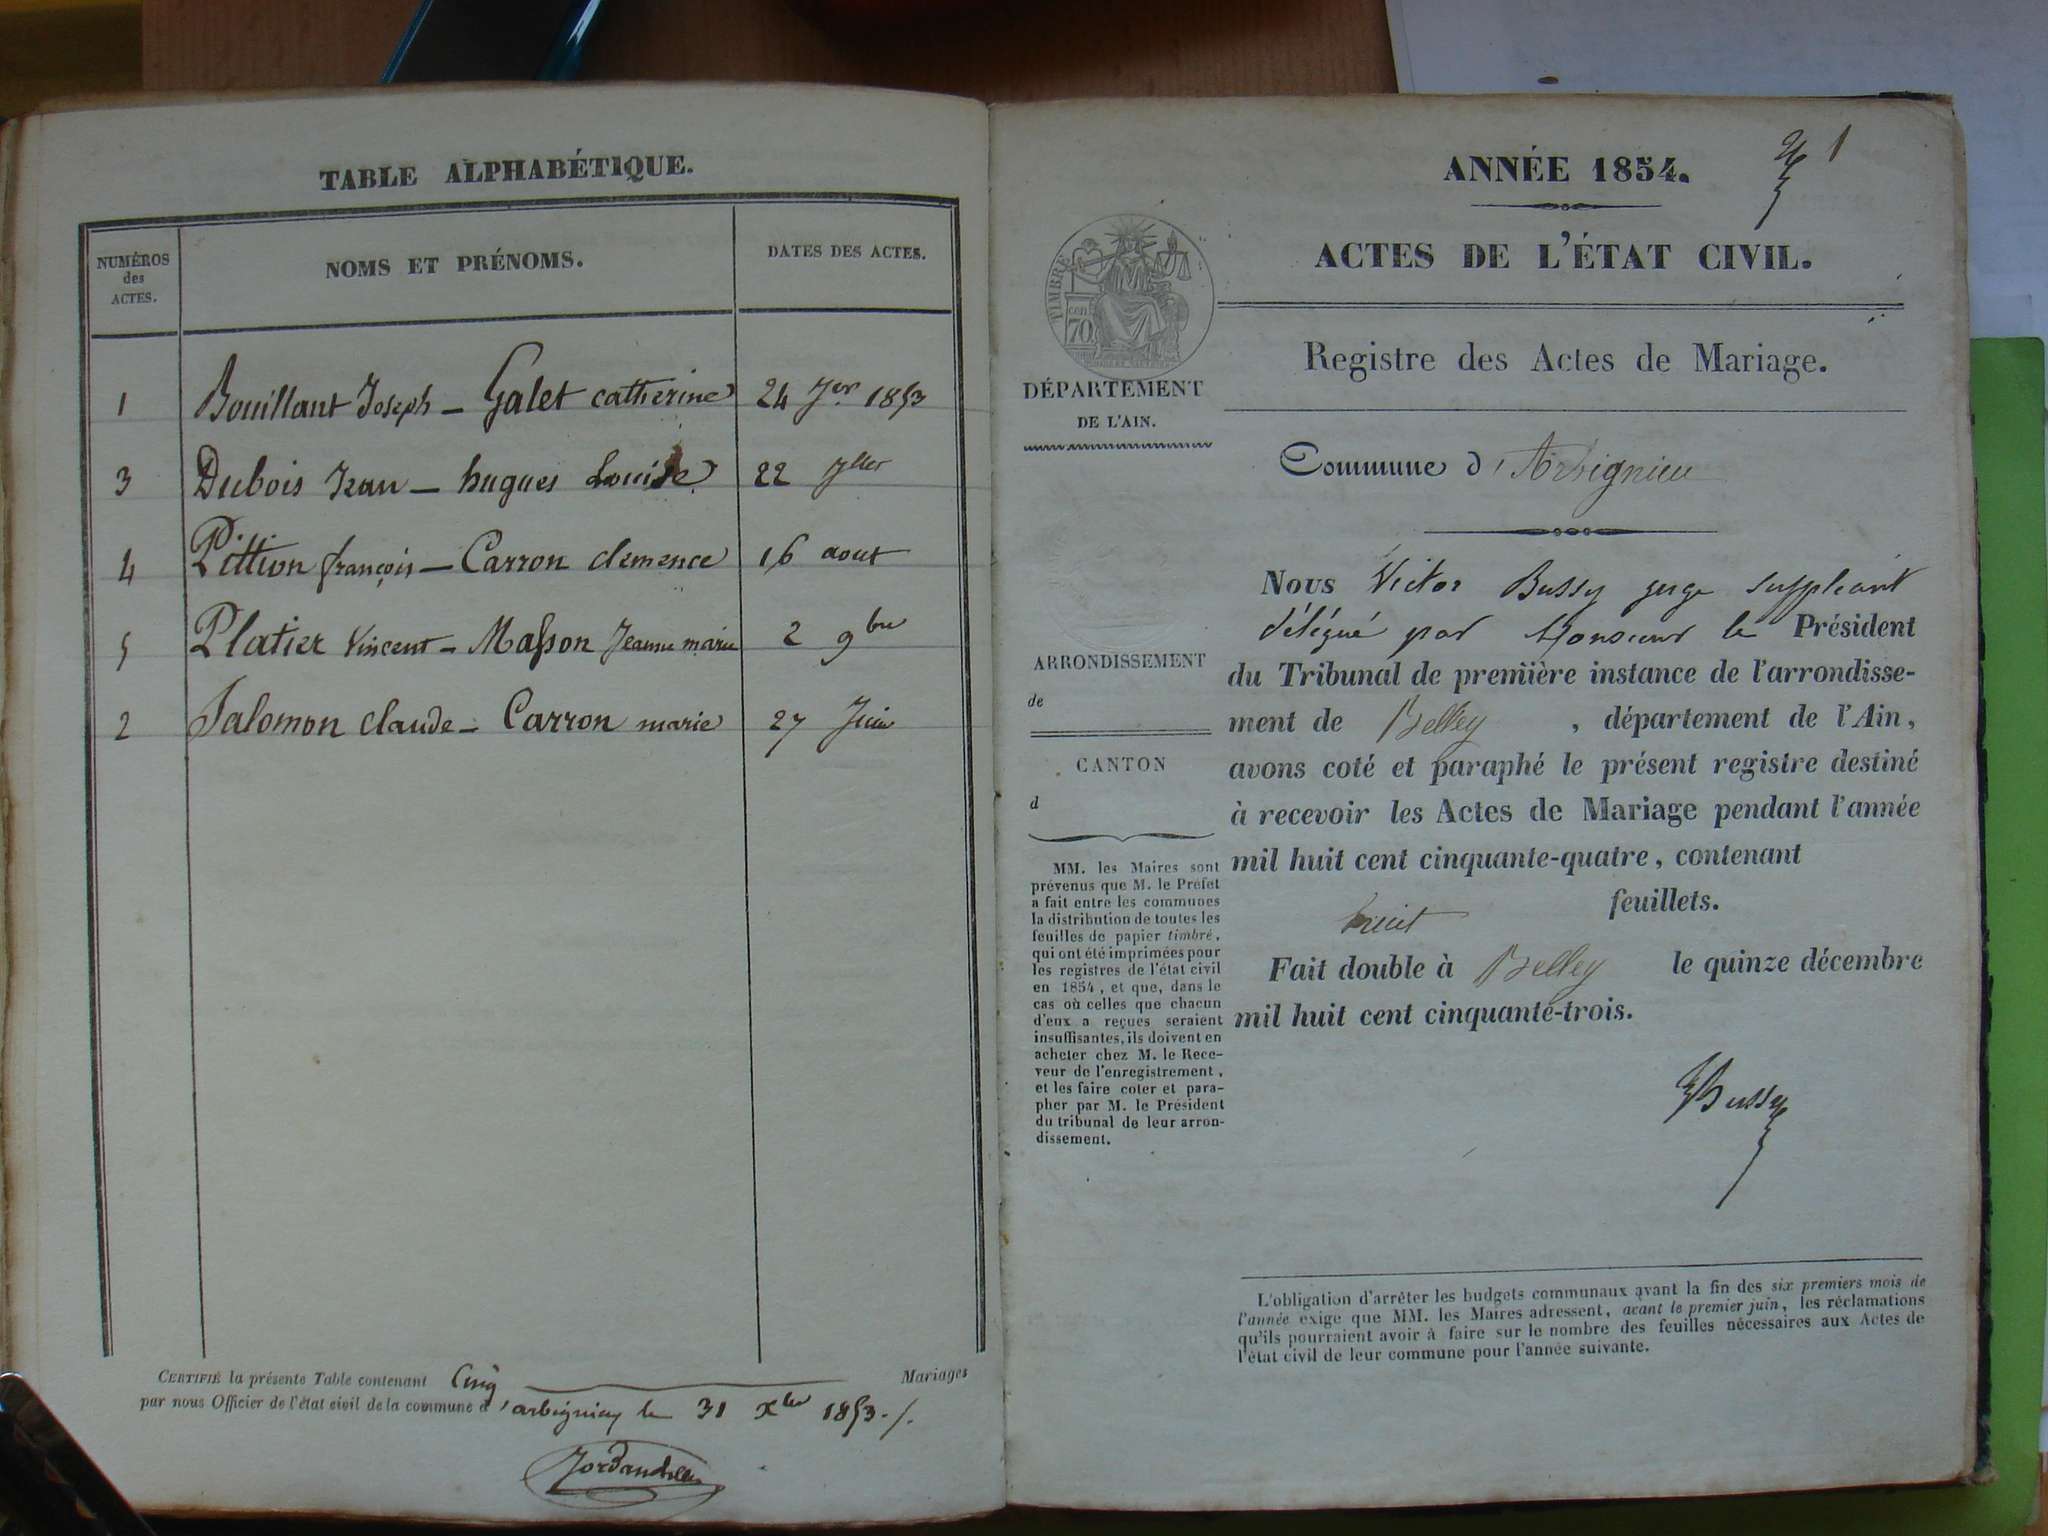 TABLE ALPHABÉTIQUE.
NUMÉROS
des
ACTES.
NOMS ET PRÉNOMS.
DATES DES ACTES.
1 Bouillant Joseph – Galet catherine 24 Jer 1853
3 Dubois Jean – hugues Louise 22 Jllet
4 Pittion françois – Carron clemence 16 aout
5 Platier Vincent – Masson Jeanne marie 2 9bre
2 Salomon claude – Carron marie 27 Juin
CERTIFIÉ la présente Table contenant Cinq Mariages
par nous Officier de l'état civil de la commune d'arbignieu le 31 Xbre 1853./.
ANNÉE 1854.
1
ACTES DE L'ÉTAT CIVIL.
TIMBRE
cen.
70.
Registre des Actes de Mariage.
DÉPARTEMENT
DE L'AIN.
Commune d'Arbignieu
Nous Victor Bussy juge suppléant
délégué par Monsieur le Président
du Tribunal de première instance de l'arrondisse-
ment de Belley, département de l'Ain,
avons coté et paraphé le présent registre destiné
à recevoir les Actes de Mariage pendant l'année
mil huit cent cinquante-quatre, contenant
huit feuillets.
Fait double à Belley le quinze décembre
mil huit cent cinquante-trois.
VBussy
ARRONDISSEMENT
de
CANTON
d
MM. les Maires sont
prévenus que M. le Préfet
a fait entre les communes
la distribution de toutes les
feuilles de papier timbré,
qui ont été imprimées pour
les registres de l'état civil
en 1854, et que, dans le
cas où celles que chacun
d'eux a reçues seraient
insuffisantes, ils doivent en
acheter chez M. le Rece-
veur de l'enregistrement,
et les faire coter et para-
pher par M. le Président
du tribunal de leur arron-
dissement.
L'obligation d'arrêter les budgets communaux avant la fin des six premiers mois de
l'année exige que MM. les Maires adressent, avant le premier juin, les réclamations
qu'ils pourraient avoir à faire sur le nombre des feuilles nécessaires aux Actes de
l'état civil de leur commune pour l'année suivante.